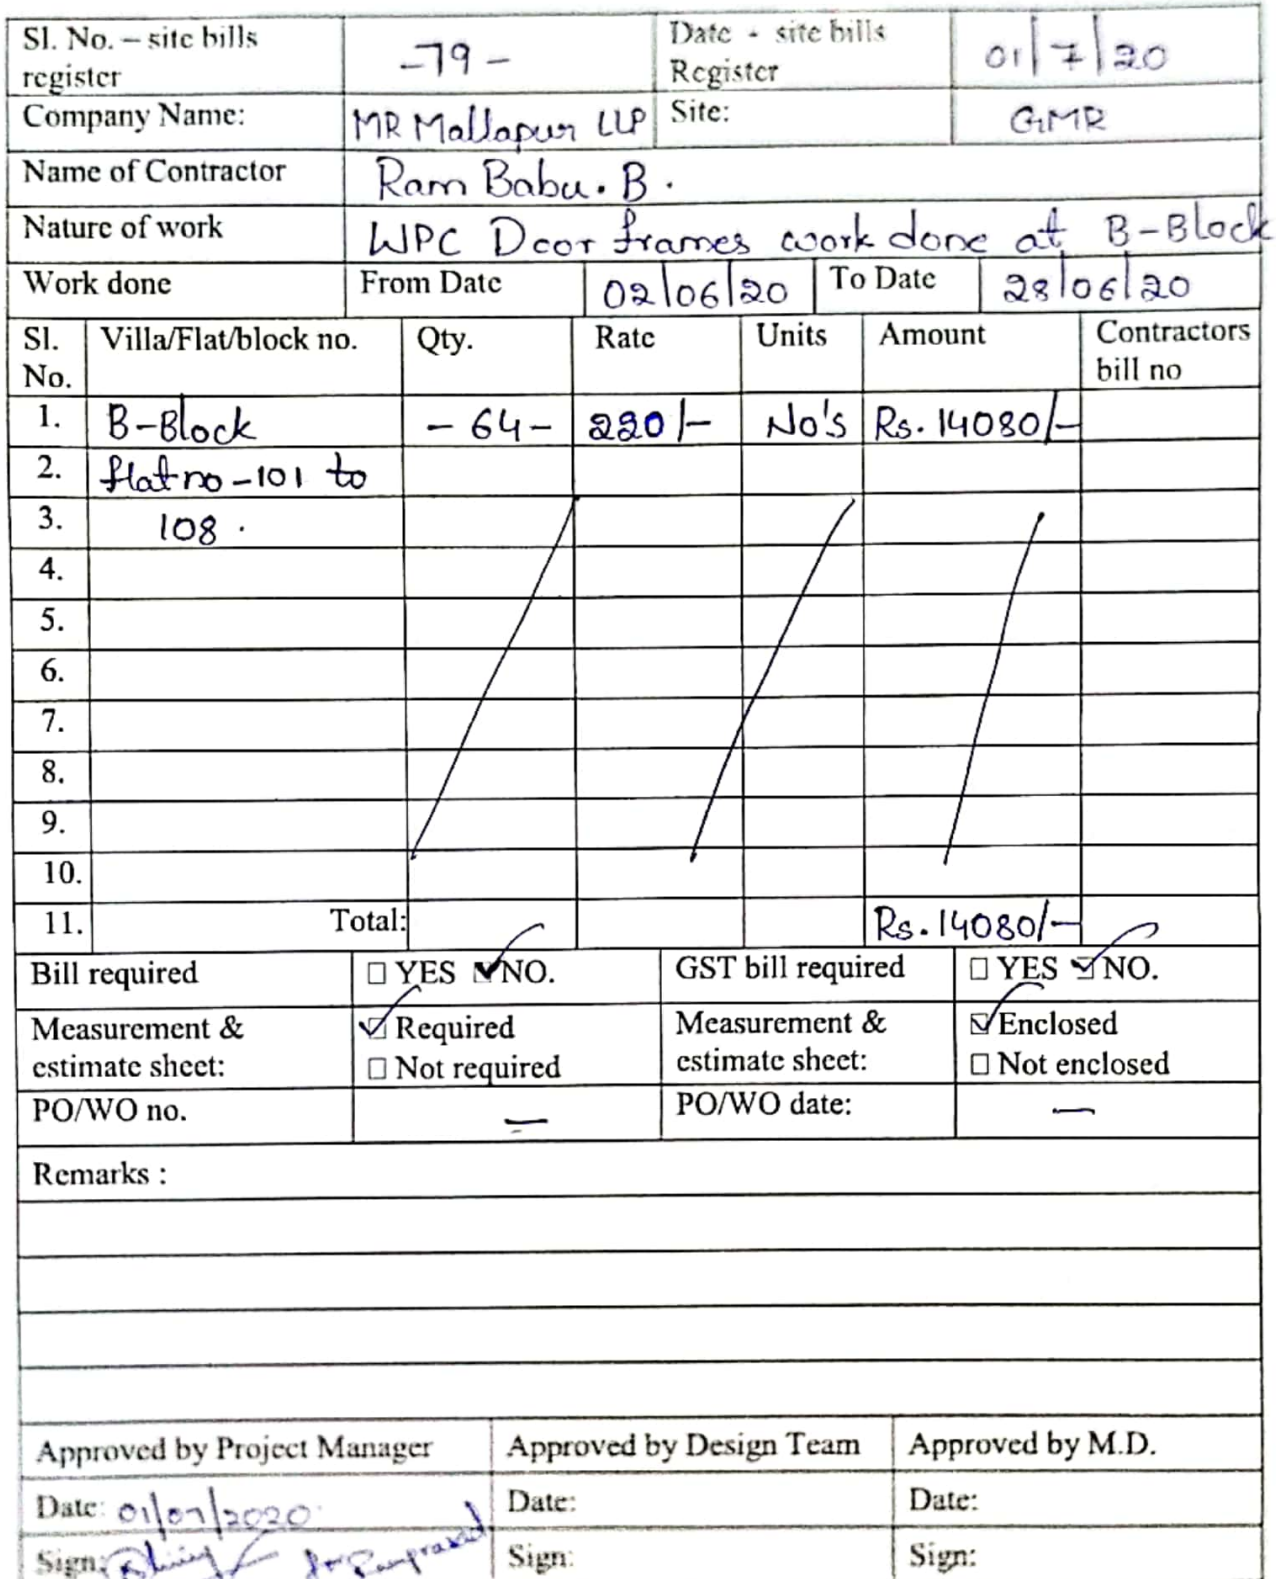 Sl. No. – site bills register -79- Date - site bills Register 01/7/20
Company Name: MR Mallapur LLP Site: GMR
Name of Contractor Ram Babu. B.
Nature of work WPC Door frames work done at B-Block
Work done From Date 02/06/20 To Date 28/06/20
Sl. No. Villa/Flat/block no. Qty. Rate Units Amount Contractors bill no
1. B-Block - 64 - 220/- No's Rs. 14080/-
2. flat no -101 to
3. 108.
4.
5.
6.
7.
8.
9.
10.
11. Total: Rs. 14080/-
Bill required ☐ YES ☑ NO. GST bill required ☐ YES ☑ NO.
Measurement & estimate sheet: ☑ Required ☐ Not required Measurement & estimate sheet: ☑ Enclosed ☐ Not enclosed
PO/WO no. — PO/WO date: —
Remarks :
Approved by Project Manager Approved by Design Team Approved by M.D.
Date: 01/07/2020 Date: Date:
Sign: Sign: Sign: